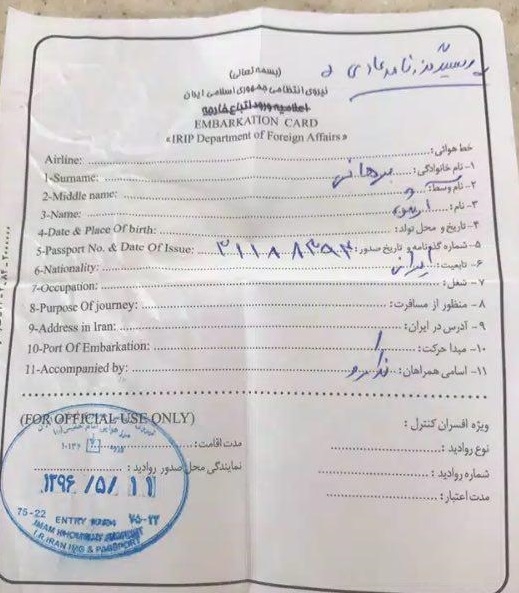 (بسمه تعالی)
نیروی انتظامی جمهوری اسلامی ایران
اعلامیه ورود اتباع خارجه
EMBARKATION CARD
«IRIP Department of Foreign Affairs»
Airline: خط هوائی:
1-Surname: برهانی ۱- نام خانوادگی:
2-Middle name: ۲- نام وسط:
3-Name: ۳- نام:
4-Date & Place Of birth: ۴- تاریخ و محل تولد:
5-Passport No. & Date Of Issue: ۵- شماره گذرنامه و تاریخ صدور:
6-Nationality: ایرانی ۶- تابعیت:
7-Occupation: ۷- شغل:
8-Purpose Of journey: ۸- منظور از مسافرت:
9-Address in Iran: ۹- آدرس در ایران:
10-Port Of Embarkation: ۱۰- مبدا حرکت:
11-Accompanied by: ندارد ۱۱- اسامی همراهان:
(FOR OFFICIAL USE ONLY) ویژه افسران کنترل:
مدت اقامت: نوع روادید:
نمایندگی محل صدور روادید: شماره روادید:
مدت اعتبار:
۱۳۹۶/۵/11
75-22 ENTRY ۷۵-۲۲
IMAM KHOMEINI AIRPORT
I.R.IRAN IMG & PASSPORT